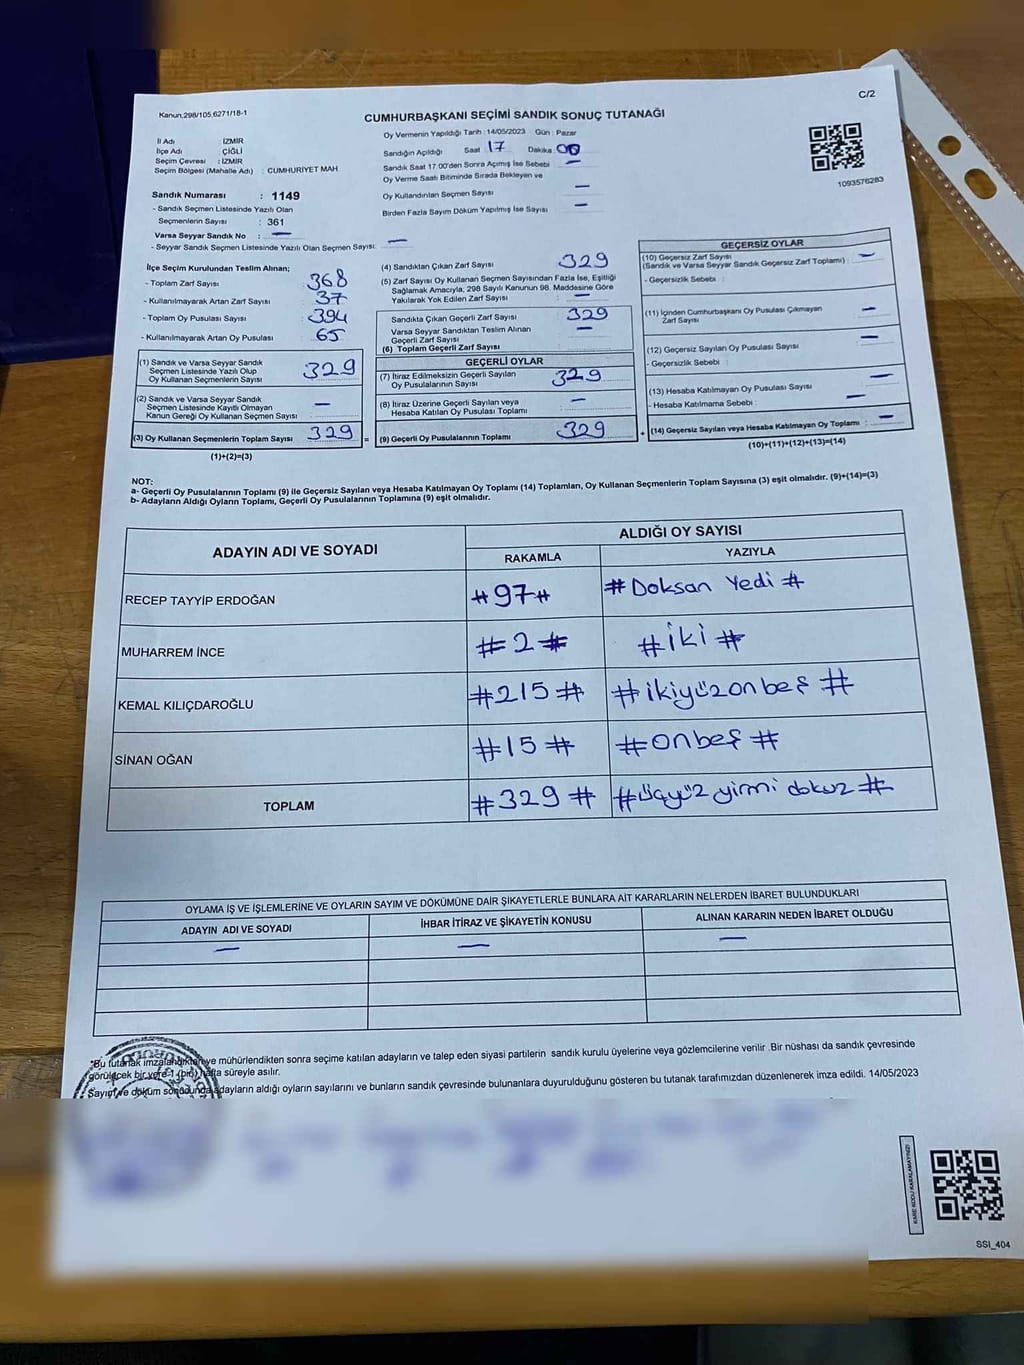 C/2
Kanun,298/105,6271/18-1
CUMHURBAŞKANI SEÇİMİ SANDIK SONUÇ TUTANAĞI
Oy Vermenin Yapıldığı Tarih :14/05/2023 Gün : Pazar
İl Adı : İZMİR
İlçe Adı : ÇİĞLİ
Seçim Çevresi : İZMİR
Seçim Bölgesi (Mahalle Adı) : CUMHURIYET MAH
Sandığın Açıldığı Saat 17 Dakika 00
Sandık Saat 17.00'den Sonra Açılmış İse Sebebi —
Oy Verme Saati Bitiminde Sırada Bekleyen ve
Oy Kullandırılan Seçmen Sayısı —
Birden Fazla Sayım Döküm Yapılmış İse Sayısı —
1093576283
Sandık Numarası : 1149
- Sandık Seçmen Listesinde Yazılı Olan
Seçmenlerin Sayısı : 361
Varsa Seyyar Sandık No : —
- Seyyar Sandık Seçmen Listesinde Yazılı Olan Seçmen Sayısı: —
İlçe Seçim Kurulundan Teslim Alınan;
- Toplam Zarf Sayısı : 368
- Kullanılmayarak Artan Zarf Sayısı : 37
- Toplam Oy Pusulası Sayısı : 394
- Kullanılmayarak Artan Oy Pusulası : 65
(1) Sandık ve Varsa Seyyar Sandık
Seçmen Listesinde Yazılı Olup
Oy Kullanan Seçmenlerin Sayısı : 329
(2) Sandık ve Varsa Seyyar Sandık
Seçmen Listesinde Kayıtlı Olmayan
Kanun Gereği Oy Kullanan Seçmen Sayısı : —
(3) Oy Kullanan Seçmenlerin Toplam Sayısı : 329 =
(1)+(2)=(3)
(4) Sandıktan Çıkan Zarf Sayısı : 329
(5) Zarf Sayısı Oy Kullanan Seçmen Sayısından Fazla İse, Eşitliği
Sağlamak Amacıyla, 298 Sayılı Kanunun 98. Maddesine Göre
Yakılarak Yok Edilen Zarf Sayısı : —
Sandıkta Çıkan Geçerli Zarf Sayısı : 329
Varsa Seyyar Sandıktan Teslim Alınan
Geçerli Zarf Sayısı : —
(6) Toplam Geçerli Zarf Sayısı :
GEÇERLİ OYLAR
(7) İtiraz Edilmeksizin Geçerli Sayılan
Oy Pusulalarının Sayısı : 329
(8) İtiraz Üzerine Geçerli Sayılan veya
Hesaba Katılan Oy Pusulası Toplamı : —
(9) Geçerli Oy Pusulalarının Toplamı : 329 +
GEÇERSİZ OYLAR
(10) Geçersiz Zarf Sayısı
(Sandık ve Varsa Seyyar Sandık Geçersiz Zarf Toplamı) : —
- Geçersizlik Sebebi :
(11) İçinden Cumhurbaşkanı Oy Pusulası Çıkmayan
Zarf Sayısı : —
(12) Geçersiz Sayılan Oy Pusulası Sayısı : —
- Geçersizlik Sebebi :
(13) Hesaba Katılmayan Oy Pusulası Sayısı : —
- Hesaba Katılmama Sebebi : —
(14) Geçersiz Sayılan veya Hesaba Katılmayan Oy Toplamı : —
(10)+(11)+(12)+(13)=(14)
NOT:
a- Geçerli Oy Pusulalarının Toplamı (9) ile Geçersiz Sayılan veya Hesaba Katılmayan Oy Toplamı (14) Toplamları, Oy Kullanan Seçmenlerin Toplam Sayısına (3) eşit olmalıdır. (9)+(14)=(3)
b- Adayların Aldığı Oyların Toplamı, Geçerli Oy Pusulalarının Toplamına (9) eşit olmalıdır.
ADAYIN ADI VE SOYADI
ALDIĞI OY SAYISI
RAKAMLA YAZIYLA
RECEP TAYYİP ERDOĞAN #97# #Doksan Yedi #
MUHARREM İNCE #2# #iki#
KEMAL KILIÇDAROĞLU #215# #ikiyüzonbeş#
SİNAN OĞAN #15# #onbeş#
TOPLAM #329# #üçyüz yirmi dokuz#
OYLAMA İŞ VE İŞLEMLERİNE VE OYLARIN SAYIM VE DÖKÜMÜNE DAİR ŞİKAYETLERLE BUNLARA AİT KARARLARIN NELERDEN İBARET BULUNDUKLARI
ADAYIN ADI VE SOYADI İHBAR İTİRAZ VE ŞİKAYETİN KONUSU ALINAN KARARIN NEDEN İBARET OLDUĞU
— — —
*Bu tutanak imzalandıktan ve mühürlendikten sonra seçime katılan adayların ve talep eden siyasi partilerin sandık kurulu üyelerine veya gözlemcilerine verilir .Bir nüshası da sandık çevresinde
görülecek bir yere 1 (bir) hafta süreyle asılır.
Sayım ve döküm sonucunda adayların aldığı oyların sayılarını ve bunların sandık çevresinde bulunanlara duyurulduğunu gösteren bu tutanak tarafımızdan düzenlenerek imza edildi. 14/05/2023
KARE KODU KARALAMAYINIZ!
SSI_404